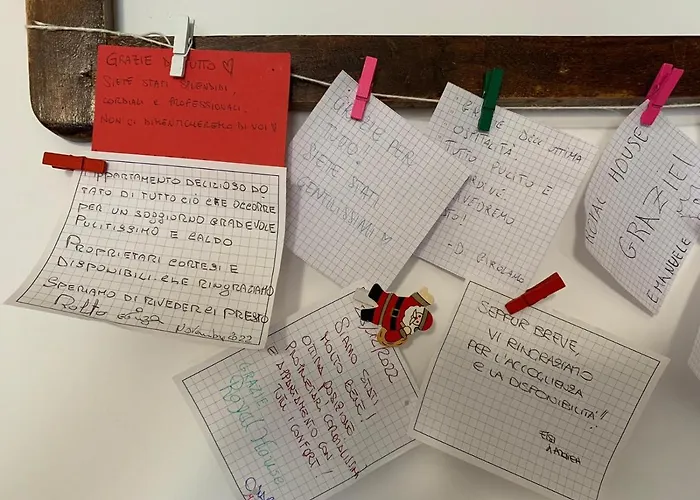 GRAZIE DI TUTTO ♡
SIETE STATI SPLENDIDI
CORDIALI E PROFESSIONALI.
NON CI DIMENTICHEREMO DI VOI!!
APPARTAMENTO DELIZIOSO DO
TATO DI TUTTO CIÒ CHE OCCORRE
PER UN SOGGIORNO GRADEVOLE
PULITISSIMO E CALDO
PROPRIETARI CORTESI E
DISPONIBILI CHE RINGRAZIAMO
SPERIAMO DI RIVEDERCI PRESTO
Novembre 2022
GRAZIE PER
TUTTO!
SIETE STATI
GENTILISSIMI
GRAZIE DELL'OTTIMA
OSPITALITÀ
TUTTO PULITO E
ROYAL HOUSE
GRAZIE!
EMANUELE
/2022
SIAMO STATI
MOLTO BENE!
OTTIMA POSIZIONE
PROPRIETARIA CORDIALISSIMA
E APPARTAMENTO CON
TUTTI I CONFORT!
GRAZIE
Royal House
SEPPUR BREVE,
VI RINGRAZIAMO
PER L'ACCOGLIENZA
E LA DISPONIBILITÀ!!